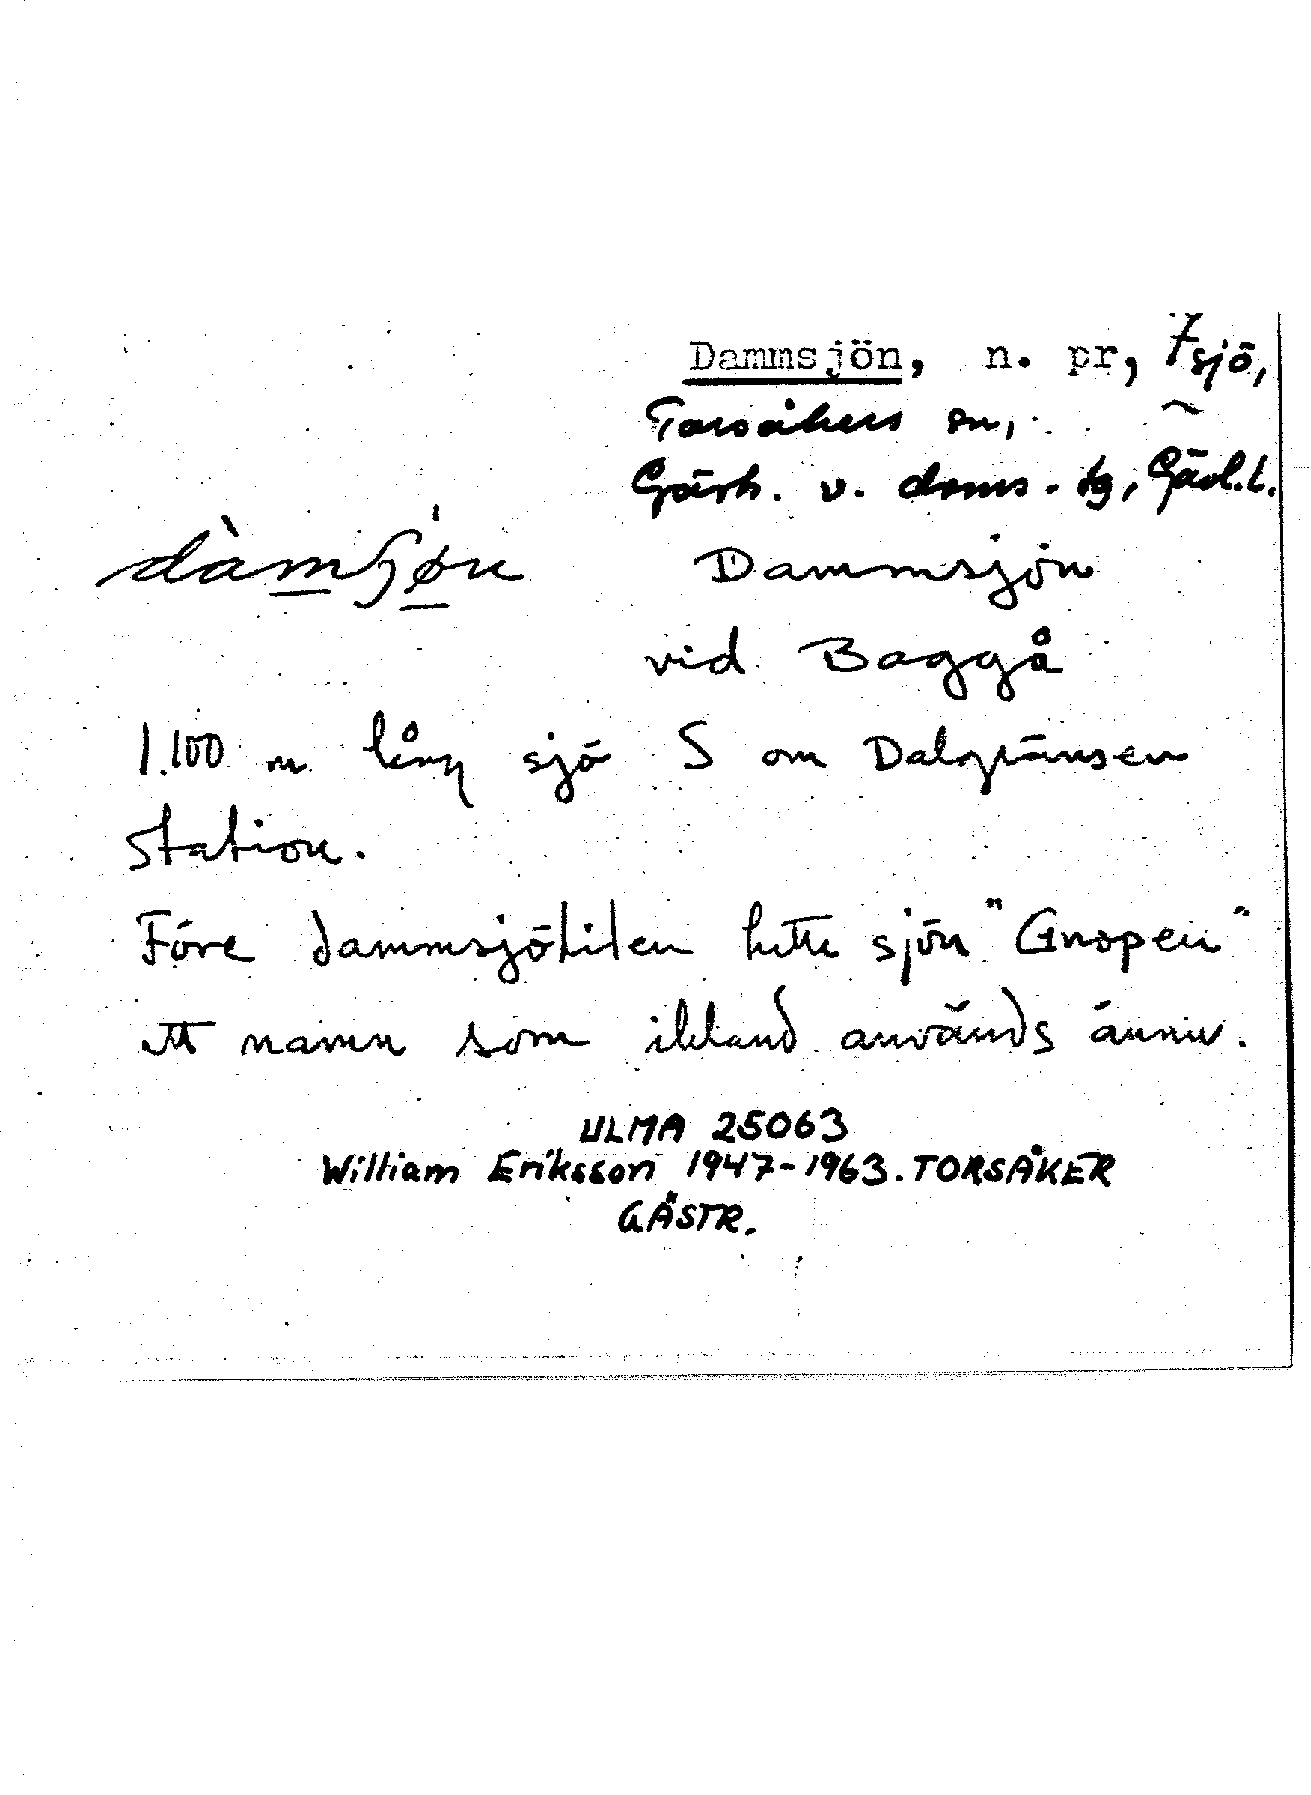 Dammsjön, n. pr, sjö,
Torsåkers sn,
Gästr. v. doms. tg, Gävl.l.
Dammsjön
vid Baggå
1.100 m lång sjö S om Dalgränsen
station.
Före dammsjötiden hette sjön "Gnopen"
ett namn som ibland används ännu.
ULMA 25063
William Eriksson 1947-1963. TORSÅKER
GÄSTR.